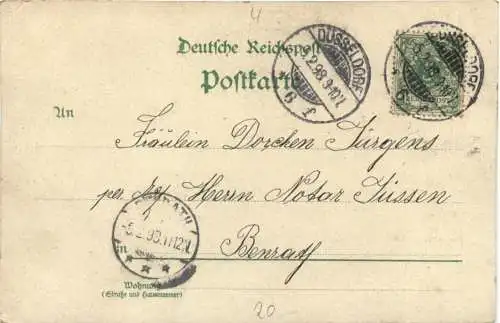 4
Deutsche Reichspost
Postkarte
DÜSSELDORF
5.2.98.9-10V.
6 f
DÜSSELDORF
An
Fräulein Dorchen Jürgens
per Adr. Herrn Notar Jüssen
in Benrath
BENRATH
-5.2.98.11-12V.
Wohnung
(Straße und Hausnummer)
20